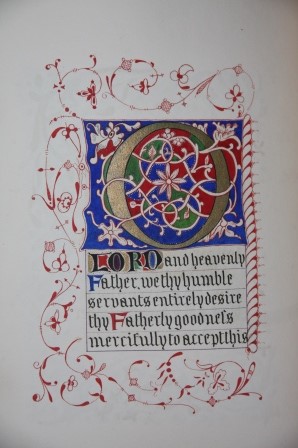 O
LORD and heavenly
Father, we thy humble
servants entirely desire
thy Fatherly goodness
mercifully to accept this